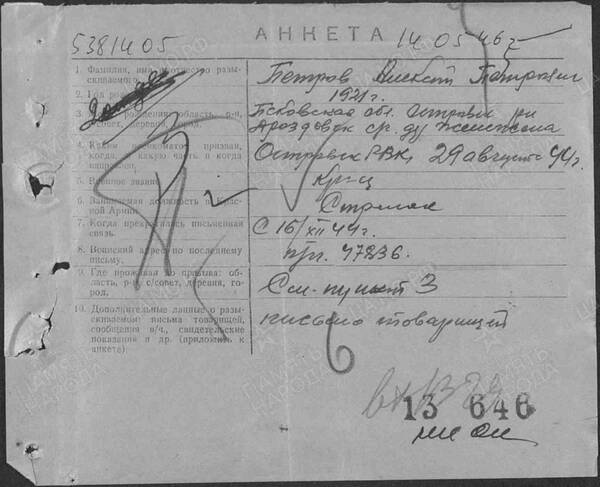 5381405
АНКЕТА
14.05.46 г
1. Фамилия, имя отчество разыскиваемого
Петров Алексей
2. Год рождения
1921 г.
3. рождения: область, р-н, с/совет, деревня, город.
Псковская обл. Островск р-н
4. Каким военкоматом призван, когда, в какую часть и когда направлен.
Островск РВК, 29 августа 44 г.
5. Военное звание
Кр-ц
6. Занимаемая должность в Красной Армии
Стрелок
7. Когда прекратилась письменная связь.
С 16/XII 44 г.
8. Воинский адрес по последнему письму.
п/п. 47236.
9. Где проживал до призыва: область, р-н, с/совет, деревня, город.
См. пункт 3
10. Дополнительные данные о разыскиваемом: письма товарищей, сообщения в/ч., свидетельские показания и др. (приложить к анкете)
письмо товарищей
13 646